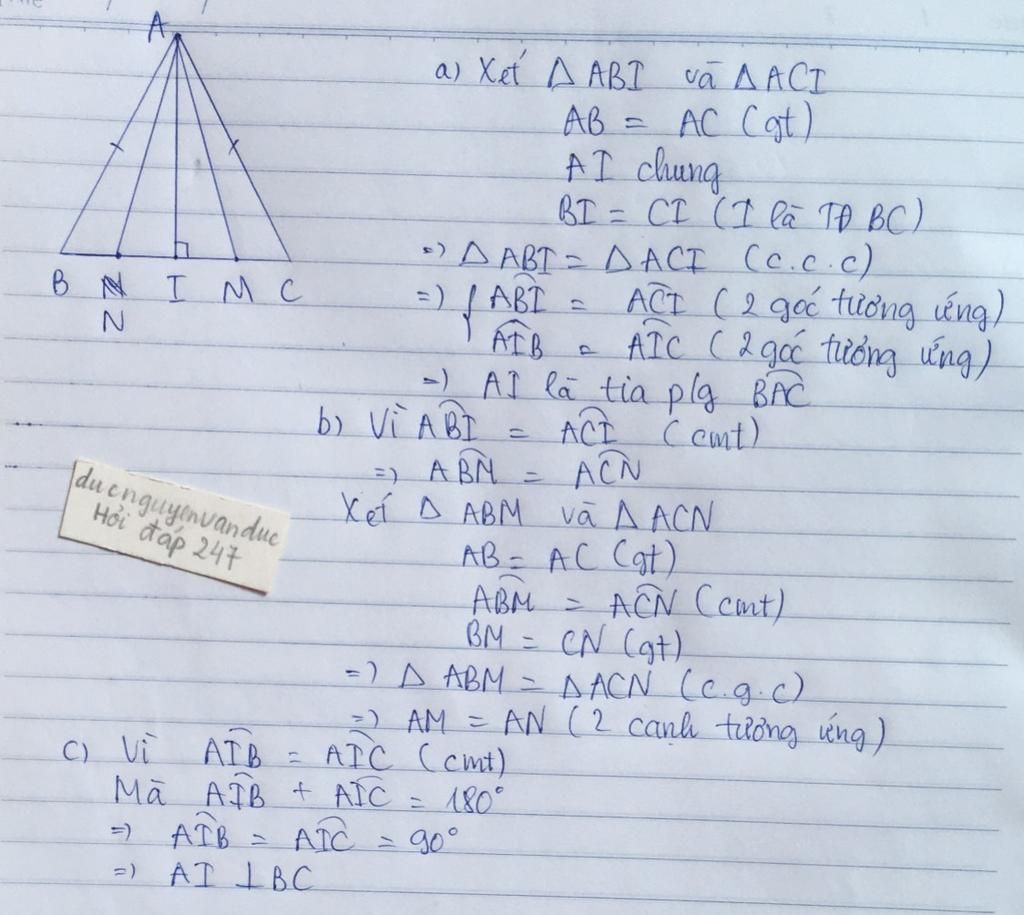 A
B N I M C
N
a) Xét Δ ABI và Δ ACI
AB = AC (gt)
AI chung
BI = CI (I là TĐ BC)
=) Δ ABI = Δ ACI (c.c.c)
=) { ABI = ACI (2 góc tương ứng)
AIB = AIC (2 góc tương ứng)
=) AI là tia p/g BAC
b) Vì ABI = ACI (cmt)
=) ABM = ACN
Xét Δ ABM và Δ ACN
AB = AC (gt)
ABM = ACN (cmt)
BM = CN (gt)
=) Δ ABM = Δ ACN (c.g.c)
=) AM = AN (2 cạnh tương ứng)
c) Vì AIB = AIC (cmt)
Mà AIB + AIC = 180°
=) AIB = AIC = 90°
=) AI ⊥ BC
ducnguyenvanduc
Hỏi đáp 247